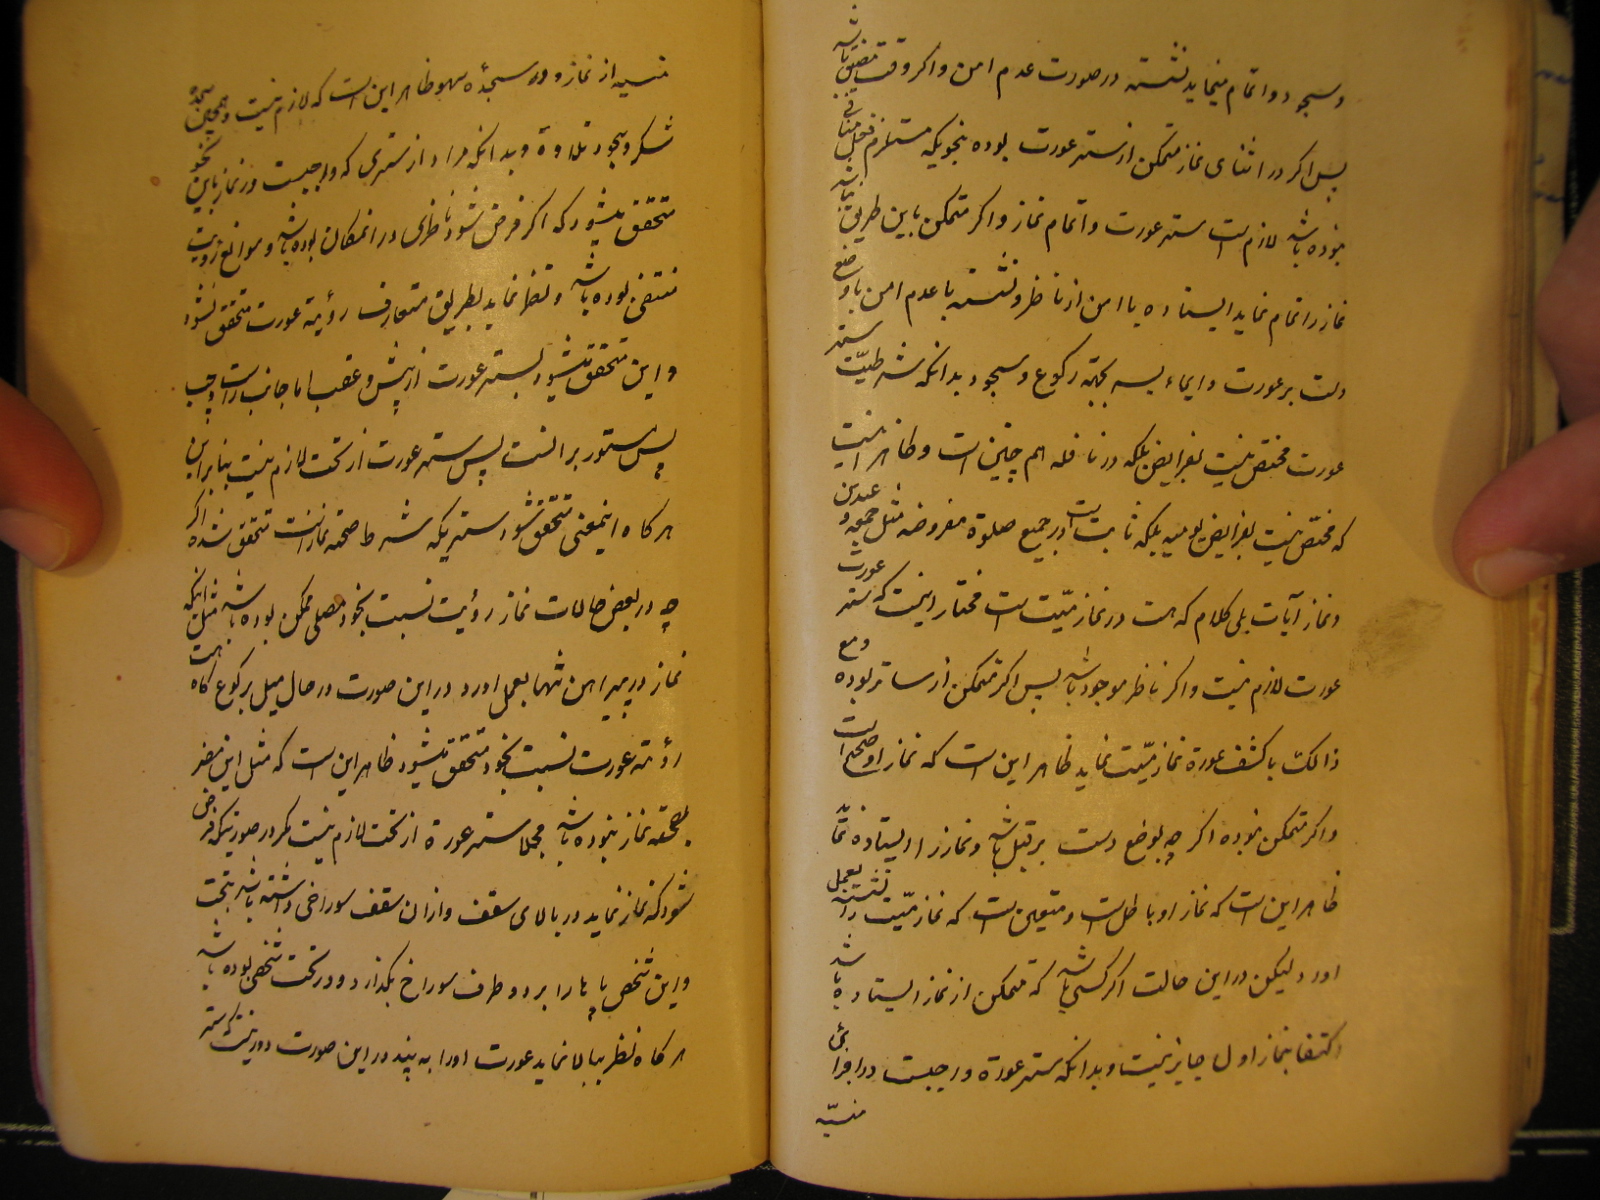 و سجود و اتمام مینماید نشسته در صورت عدم امن و اکر وقت مضیق باشد
پس اکر در اثنای نماز متمکن از ستر عورت بوده بنحویکه مستلزم فعل منافی
نبوده باشد لازم است ستر عورت و اتمام نماز و اکر متمکن باین طریق نباشد
نماز را تمام نماید ایستاده با امن از ناظر و نشسته با عدم امن با وضع
دست بر عورت و ایماء بسر بجهة رکوع و سجود بدانکه شرطیّت ستر
عورت مختص نیست بفرایض بلکه در نافله هم چنین است و ظاهر اینست
که مختصّ نیست بفرایض یومیه بلکه ثابت است در جمیع صلوة مفروضه مثل جمعه و عیدین
و نماز آیات بلی کلام که هست در نماز میّت است مختار اینست که ستر عورت
عورت لازم نیست و اکر ناظر موجود باشد پس اکر متمکن از ساتر بوده و مع
ذالک با کشف عورة نماز میّت نماید ظاهر این است که نماز او صحیح است
و اکر متمکن نبوده اکر چه بوضع دست بر قبل باشد و نماز را ایستاده
ظاهر این است که نماز او باطل است و متعین است که نماز میّت را نشسته بعمل
اورد لیکن در این حالت اکر کسی باشد که متمکن از نماز ایستاده باشد
اکتفا بنماز اول جایز نیست و بدانکه ستر عورة واجبست در اجزائ
منسیّه
منسیه از نماز و در سجدهٔ سهو ظاهر این است که لازم نیست و همچنین سجدهٔ
شکر و سجود تلاوة و بدانکه مراد از ستری که واجبست در نماز باین نحو
متحقق میشود که اکر فرض شود ناظری در انمکان بوده باشد و موانع رؤیت
منتفی بوده باشد و نظر نماید بطریق متعارف رؤیة عورت متحقق نشود
و این متحقق میشود بستر عورت از پیش و عقب اما جانب راست و چپ
پس مستور بر انست پس ستر عورت از تحت لازم نیست بنا بر این
هر کاه اینمعنی متحقق شود ستریکه شرط صحة نماز است متحقق شده اکر
چه در بعض حالات نماز رؤیت نسبت بخود مصلی ممکن بوده باشد مثل انکه
نماز در پیراهن تنها بعمل اورد در این صورت در حال میل برکوع کاه هست
رؤیة عورت نسبت بخود متحقق میشود ظاهر این است که مثل این مضر
بصحة نماز نبوده باشد مجملا ستر عورة از تحت لازم نیست مکر در صورتیکه فرض
شود که نماز نماید در بالای سقف و ازان سقف سوراخی داشته باشد بتحت
و این شخص پاها را بر دو طرف سوراخ بکذارد و در تحت شخصی بوده باشد
هر کاه نظر ببالا نماید عورت او را به بیند در این صورت دور نیست که ستر